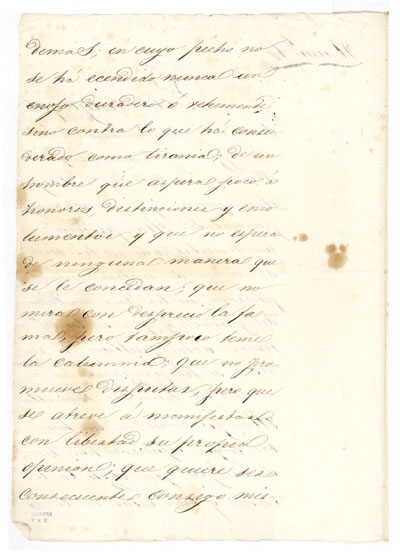 demas, en cuyo pecho no
se há ecendido nunca un
enojo duradero o vehemente,
sino contra lo que há consi-
derado como tirania; de un
hombre que aspira poco á
honores distinciones y emo-
lumentos y que no espera
de ninguna manera que
se le concedan; que no
mira con desprecio la fa-
ma, pero tampoco teme
la calumnia; que no pro-
mueve disputas, pero que
se atreve a manifestar
con libertad su propia
opinion; que quiere ser
consecuente consigo mis-